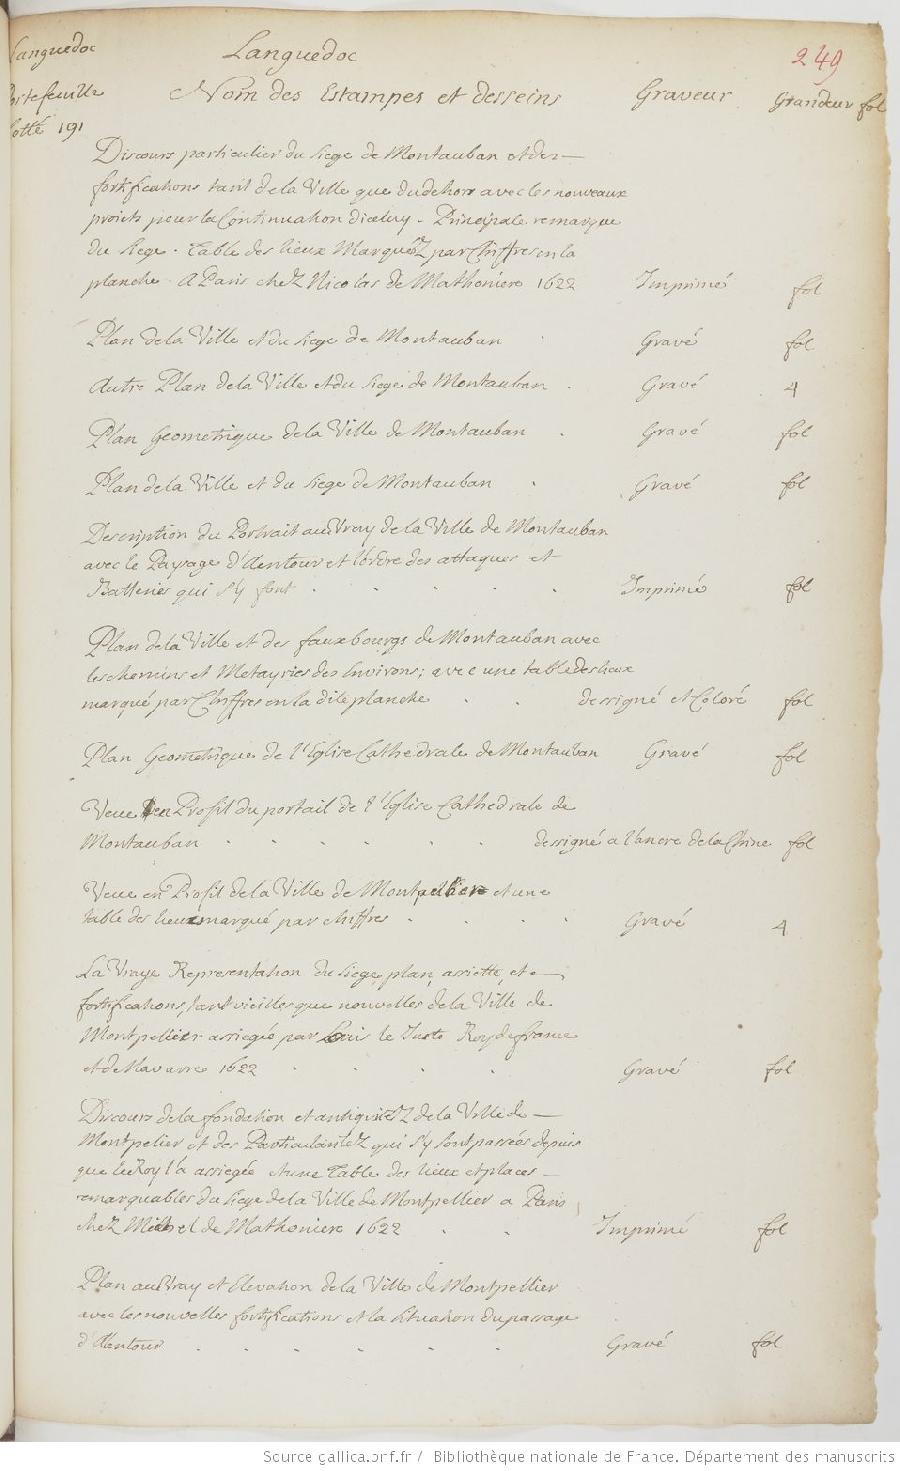 Languedoc
Portefeuille
Cotté 191
Languedoc
249
Nom des Estampes et desseins Graveur Grandeur fol
Discours particulier du siege de Montauban et des
fortifications tant de la Ville que du dehors avec les nouveaux
proiets pour la Continuation d'iceluy - Principale remarque
du siege - Table des lieux Marquéz par Chiffres en la
planche - A Paris chez Nicolas de Mathoniere 1622 Imprimé fol
Plan de la Ville et du siege de Montauban Gravé fol
Autre Plan de la Ville et du siege de Montauban Gravé 4
Plan Geometrique de la Ville de Montauban Gravé fol
Plan de la Ville et du siege de Montauban Gravé fol
Description du Portrait au Vray de la Ville de Montauban
avec le Paysage d'Alentour et l'ordre des attaques et
Batteries qui s'y font Imprimé fol
Plan de la Ville et des fauxbourgs de Montauban avec
les chemins et Metayries des Environs; avec une table des lieux
marqué par Chiffres en la dite planche dessigné et Coloré fol
Plan Geometrique de l'Eglise Cathedrale de Montauban Gravé fol
Veue en Profil du portail de l'Eglise Cathedrale de
Montauban dessigné a l'ancre de la Chine fol
Veue en Profil de la Ville de Montpellier et une
table des lieux marqué par chiffres Gravé 4
La Vraye Representation du siege, plan, assiette, et
fortifications, tant vieilles que nouvelles de la Ville de
Montpellier assiegée par Louis le Juste Roy de france
et de Navarre 1622 Gravé fol
Discours de la fondation et antiquitéz de la Ville de
Montpelier et des Particularitéz qui s'y sont passées depuis
que le Roy l'a assiegée et une Table des lieux et places
remarquables du siege de la Ville de Montpellier a Paris
chez Michel de Mathoniere 1622 Imprimé fol
Plan au Vray et Elevation de la Ville de Montpellier
avec les nouvelles fortifications et la situation du passage
d'Alentour Gravé fol
Source gallica.bnf.fr / Bibliothèque nationale de France. Département des manuscrits